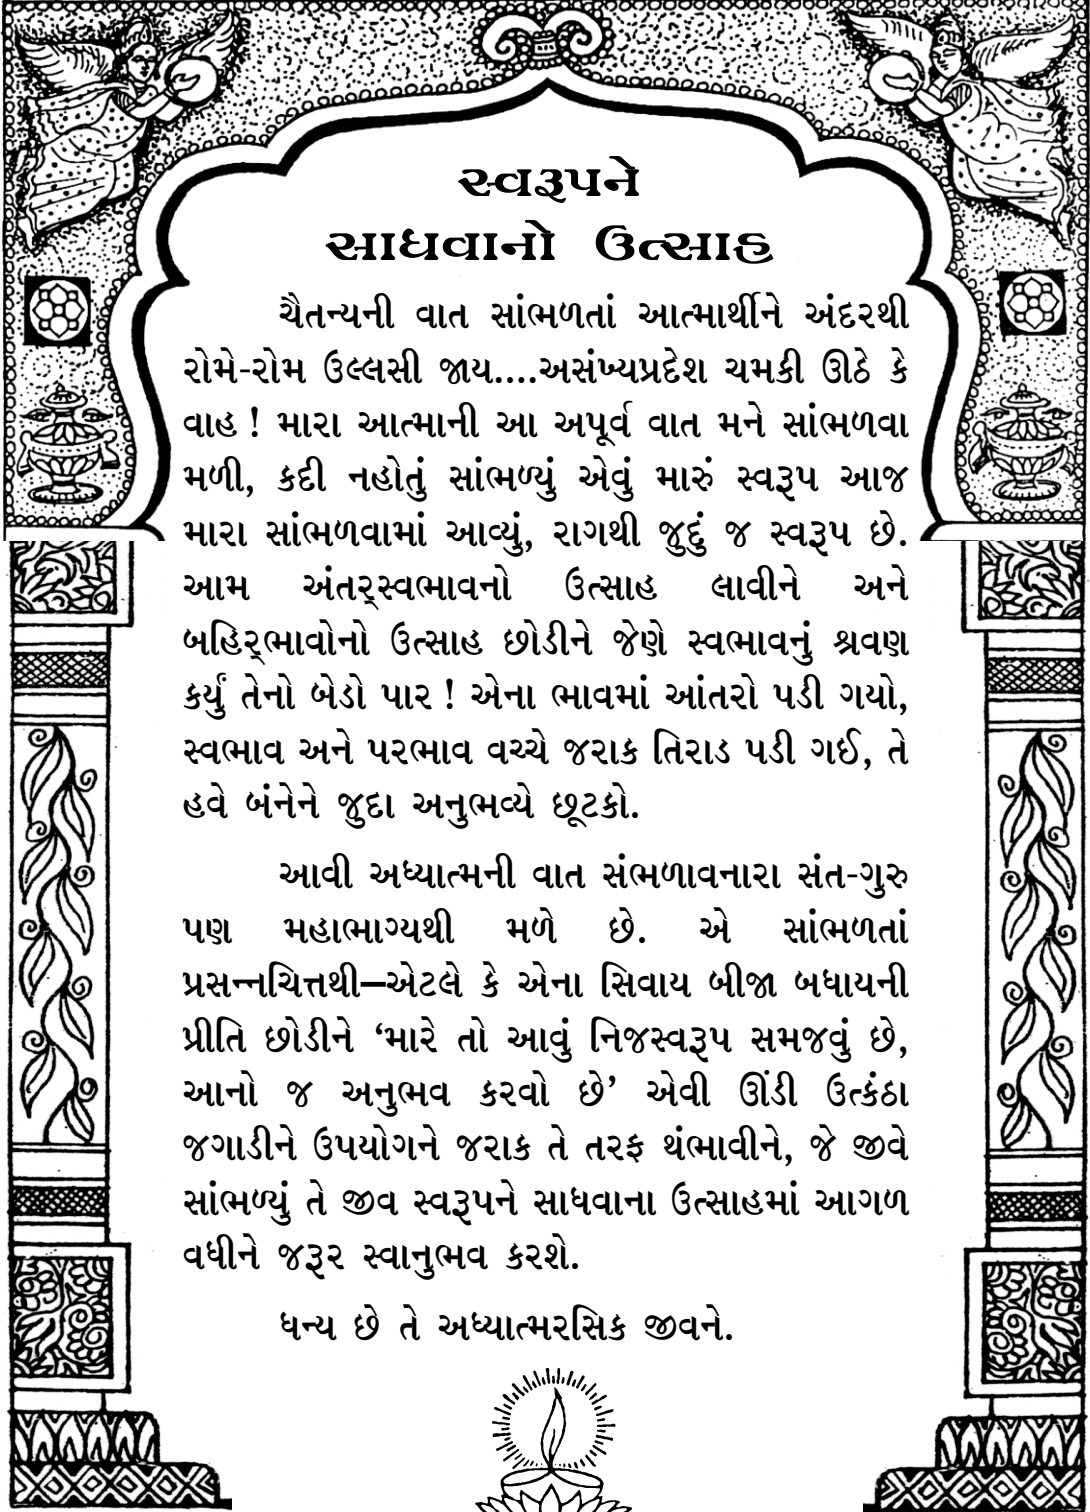 સ્વરૂપને
સાધવાનો ઉત્સાહ
ચૈતન્યની વાત સાંભળતાં આત્માર્થીને અંદરથી
રોમે-રોમ ઉલ્લસી જાય....અસંખ્યપ્રદેશ ચમકી ઊઠે કે
વાહ ! મારા આત્માની આ અપૂર્વ વાત મને સાંભળવા
મળી, કદી નહોતું સાંભળ્યું એવું મારું સ્વરૂપ આજ
મારા સાંભળવામાં આવ્યું, રાગથી જુદું જ સ્વરૂપ છે.
આમ અંતર્‌સ્વભાવનો ઉત્સાહ લાવીને અને
બહિર્‌ભાવોનો ઉત્સાહ છોડીને જેણે સ્વભાવનું શ્રવણ
કર્યું તેનો બેડો પાર ! એના ભાવમાં આંતરો પડી ગયો,
સ્વભાવ અને પરભાવ વચ્ચે જરાક તિરાડ પડી ગઈ, તે
હવે બંનેને જુદા અનુભવ્યે છૂટકો.
આવી અધ્યાત્મની વાત સંભળાવનારા સંત-ગુરુ
પણ મહાભાગ્યથી મળે છે. એ સાંભળતાં
પ્રસન્નચિત્તથી—એટલે કે એના સિવાય બીજા બધાયની
પ્રીતિ છોડીને ‘મારે તો આવું નિજસ્વરૂપ સમજવું છે,
આનો જ અનુભવ કરવો છે’ એવી ઊંડી ઉત્કંઠા
જગાડીને ઉપયોગને જરાક તે તરફ થંભાવીને, જે જીવે
સાંભળ્યું તે જીવ સ્વરૂપને સાધવાના ઉત્સાહમાં આગળ
વધીને જરૂર સ્વાનુભવ કરશે.
ધન્ય છે તે અધ્યાત્મરસિક જીવને.